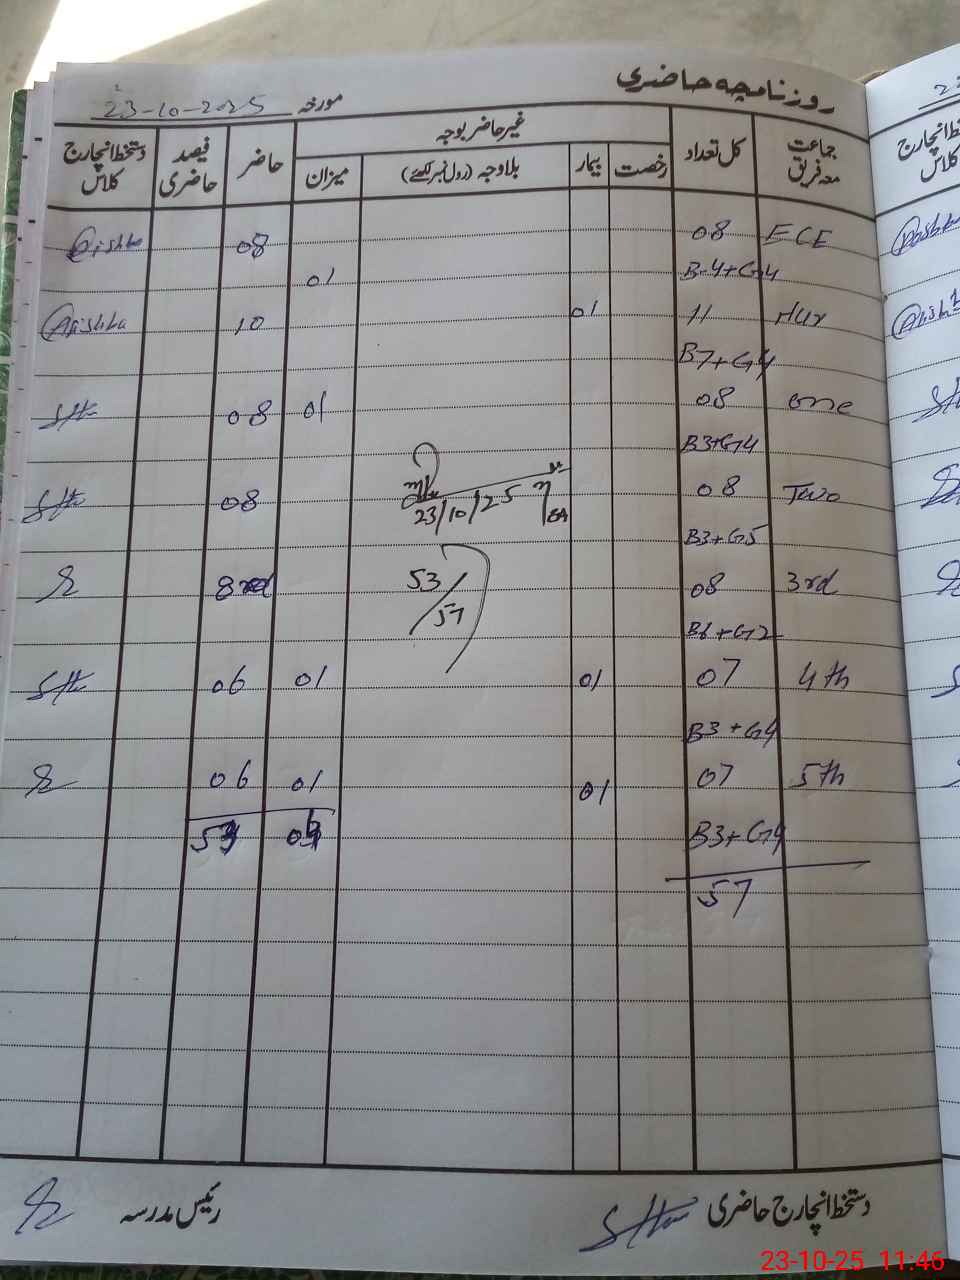 روزنامچہ حاضری
مورخہ 23-10-2025
جماعت معہ فریق | کل تعداد | غیر حاضر بوجہ | حاضر | فیصد حاضری | دستخط انچارج کلاس
رخصت | بیمار | بلاوجہ (رول نمبر لکھئے) | میزان
ECE 08 08
B-4+G4 01
Nur 11 01 10
B7+G4
one 08 01 08
B3+G4
Two 08 08
23/10/25
B3+G5
3rd 08
53/57
B6+G2
4th 07 01 01 06
B3+G4
5th 07 01 01 06
B3+G4
57
دستخط انچارج حاضری
رئیس مدرسہ
23-10-25 11:46